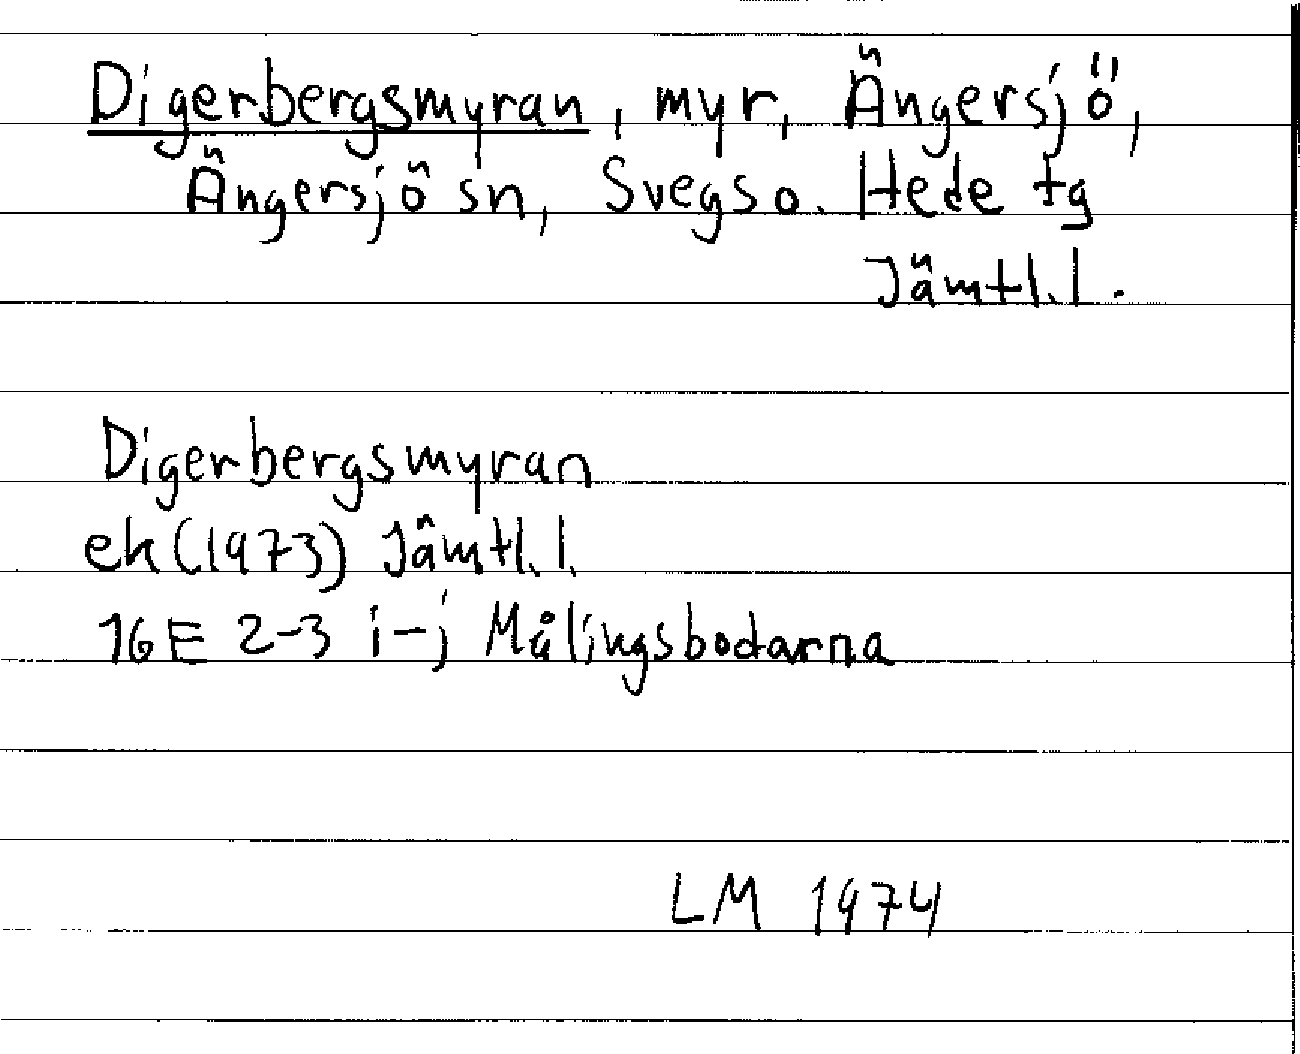 Digerbergsmyran, myr, Ängersjö,
Ängersjö sn, Svegs o. Hede tg
Jämtl. l.
Digerbergsmyran
ek (1973) Jämtl. l.
16E 2-3 i-j Målingsbodarna
LM 1974